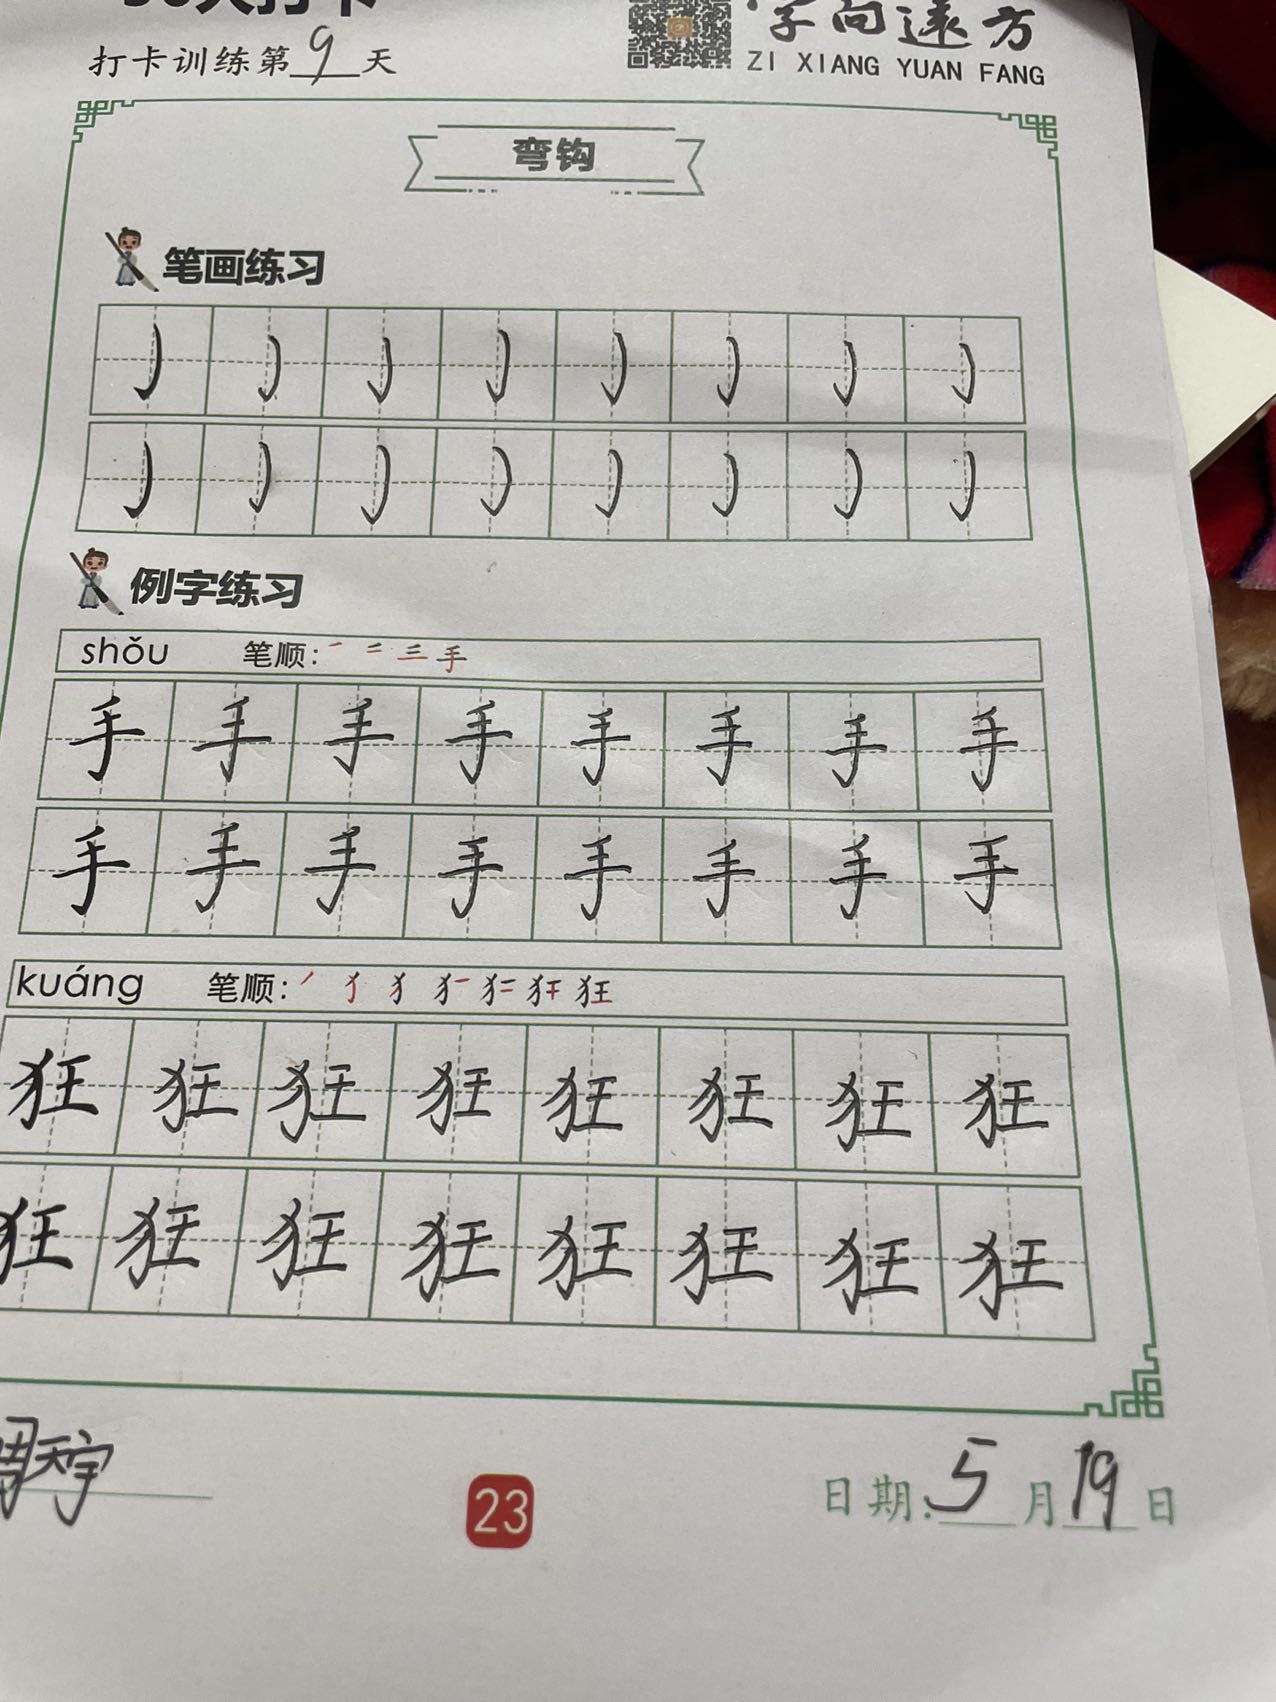 打卡训练第9天
字向远方
ZI XIANG YUAN FANG
弯钩
笔画练习
例字练习
shǒu 笔顺: 手
手 手 手 手 手 手 手 手
手 手 手 手 手 手 手 手
kuáng 笔顺: 狂
狂 狂 狂 狂 狂 狂 狂 狂
狂 狂 狂 狂 狂 狂 狂 狂
周天宇
23
日期: 5月19日